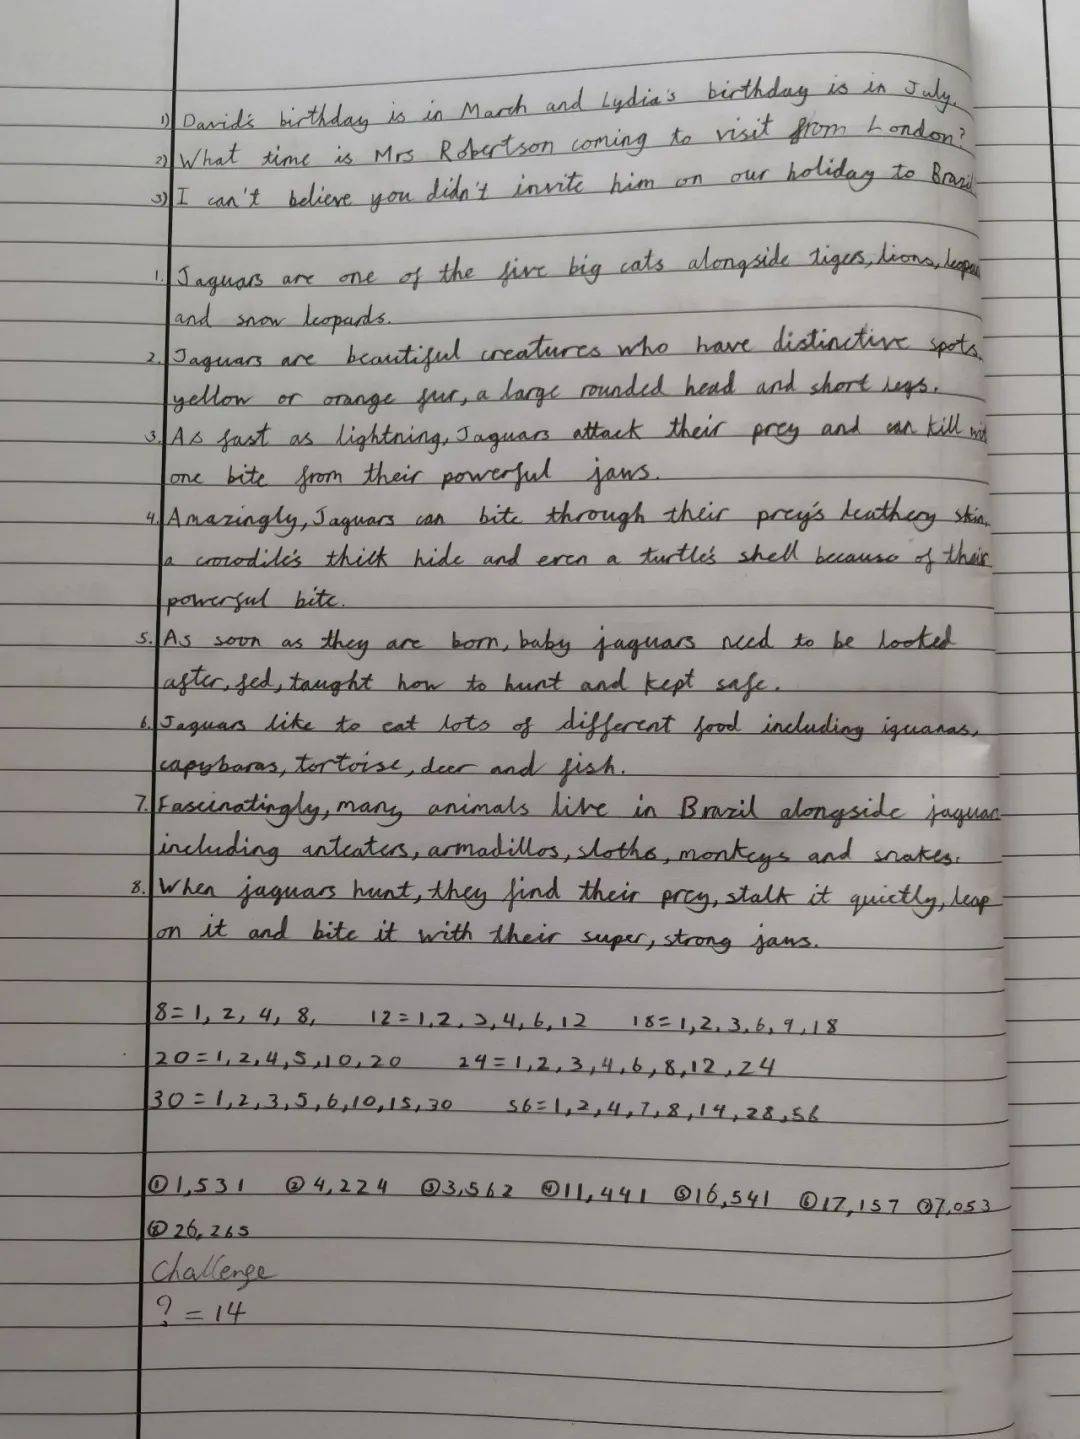 1) David's birthday is in March and Lydia's birthday is in July.
2) What time is Mrs Robertson coming to visit from London?
3) I can't believe you didn't invite him on our holiday to Brazil
1. Jaguars are one of the five big cats alongside tigers, lions,
and snow leopards.
2. Jaguars are beautiful creatures who have distinctive spots,
yellow or orange fur, a large rounded head and short legs.
3. As fast as lightning, Jaguars attack their prey and can kill with
one bite from their powerful jaws.
4. Amazingly, Jaguars can bite through their prey's leathery skin,
a crocodile's thick hide and even a turtle's shell because of their
powerful bite.
5. As soon as they are born, baby jaguars need to be looked
after, fed, taught how to hunt and kept safe.
6. Jaguars like to eat lots of different food including iguanas,
capybaras, tortoise, deer and fish.
7. Fascinatingly, many animals live in Brazil alongside jaguar
including anteaters, armadillos, sloths, monkeys and snakes.
8. When jaguars hunt, they find their prey, stalk it quietly, leap
on it and bite it with their super, strong jaws.
8=1, 2, 4, 8, 12=1,2,3,4,6,12 18=1,2,3,6,9,18
20=1,2,4,5,10,20 24=1,2,3,4,6,8,12,24
30=1,2,3,5,6,10,15,30 56=1,2,4,7,8,14,28,56
① 1,531 ② 4,224 ③ 3,562 ④ 11,441 ⑤ 16,541 ⑥ 17,157 ⑦ 7,053
⑧ 26,265
Challenge
? = 14